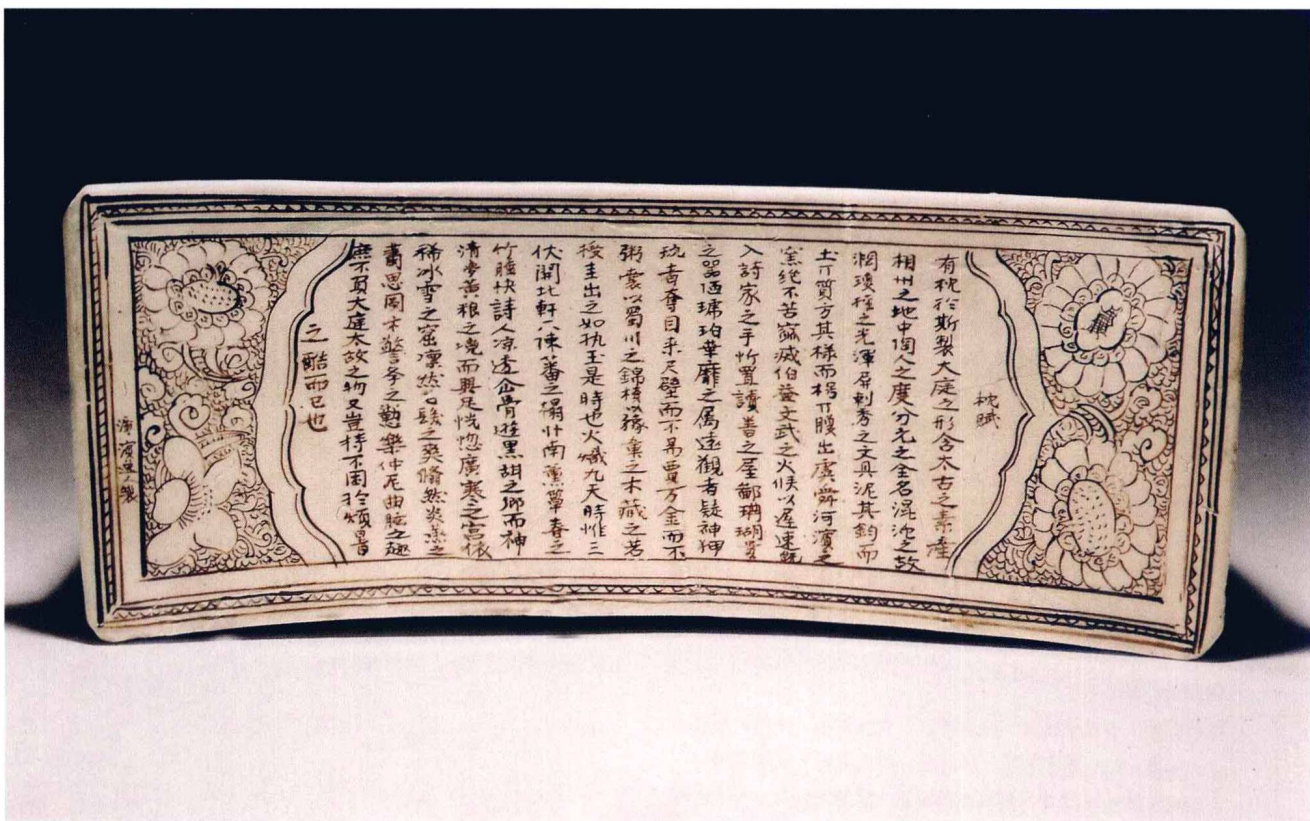 枕賦
有枕於斯製大庭之形含太古之素產
相州之地中陶人之度分元之全名混沌之故
潤瓊瑤之光渾屏刺秀之文具泥其鈞而
土丌質方其樣而枵丌腹出虞舜河濱之
窯絕不苦窳滅伯益文武之火候以遲速旣
入詩家之手忻置讀書之屋鄙珊瑚貴
之器陋琥珀華靡之属遠觀者疑神狎
玩者奪目来尺璧而不易買万金而不
粥囊以蜀川之錦櫝以豫章之木藏之若
授圭出之如执玉是時也火熾九天時惟三
伏開北軒下陳蕃之榻卧南薫簟春之
竹睡快詩人凉透仙骨遊黒甜之鄉而神
清夢黃粮之境而興足恍惚廣寒之宮依
稀冰雪之窟凜然皀髮之爽翛然炎蒸之
萧思圓木警學之勤樂仲尼曲肱之趣
庶不負大庭太故之物又豈持不困於煩暑
之酷而已也
漳濱逸人製